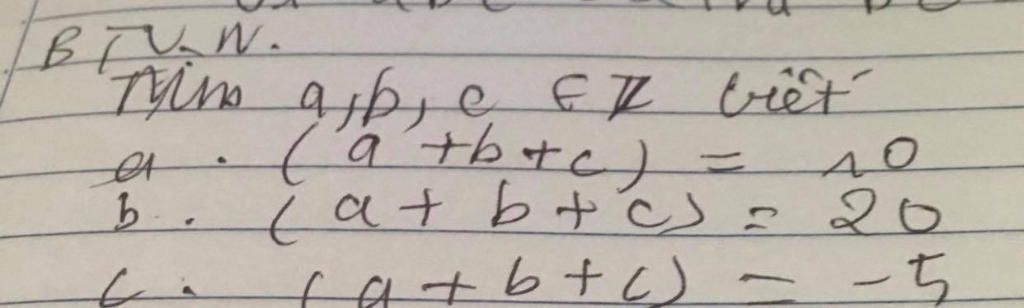 BTVN.
Tìm a, b, c ∈ Z biết
a . (a + b + c) = 10
b . (a + b + c) = 20
c . (a + b + c) = -5